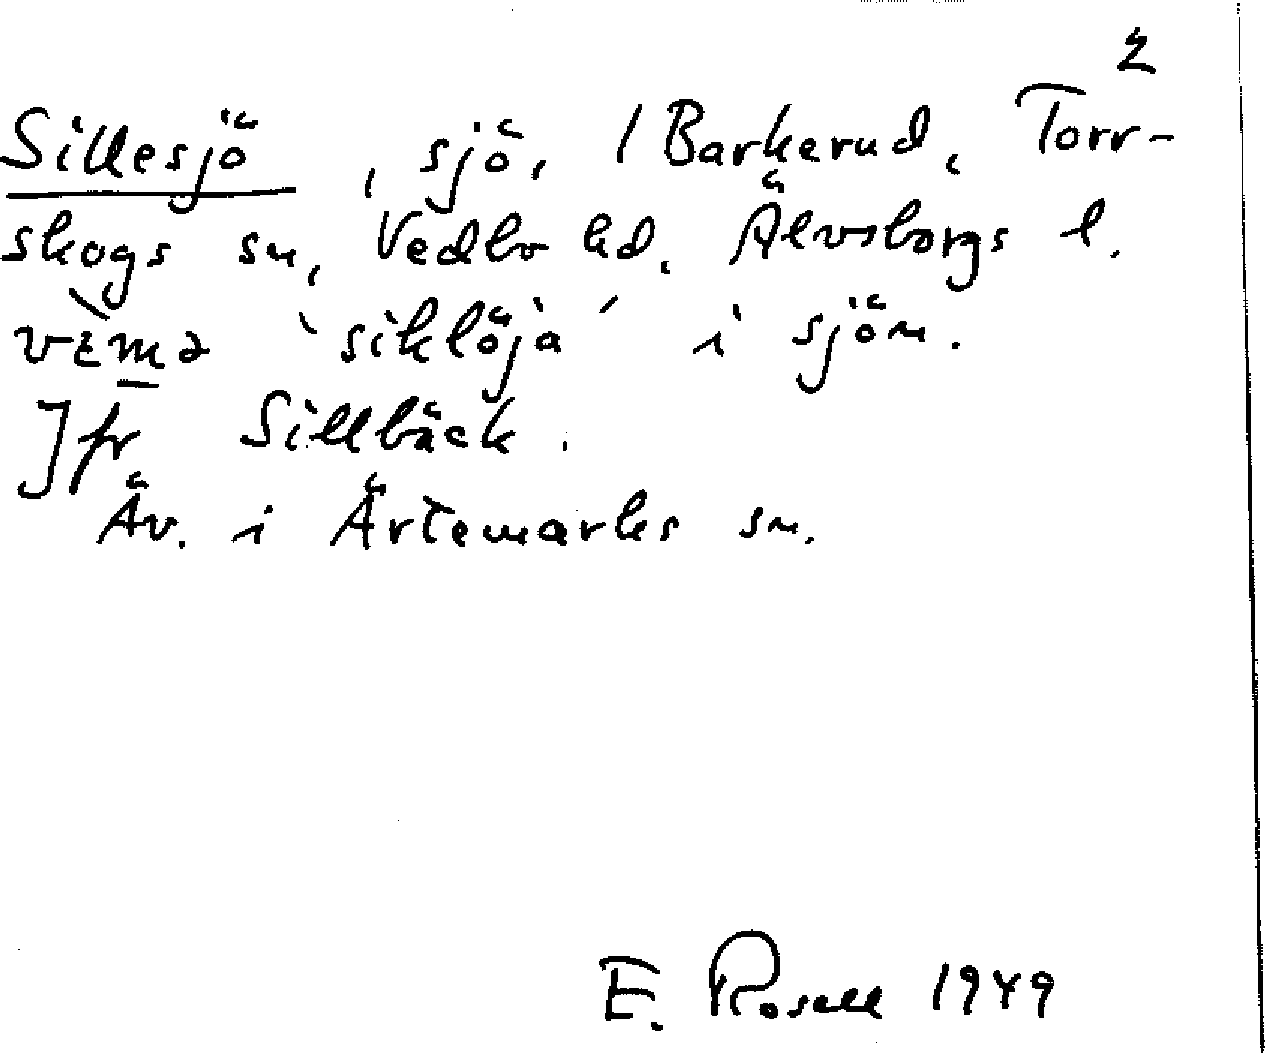 2
Sillesjö, sjö, / Barkerud, Torr-
skogs sn, Vedbo hd. Älvsborgs l.
vɛ̀mə 'siklöja' i sjön.
Jfr Sillbäck.
Äv. i Ärtemarks sn.
E. Rosell 1949